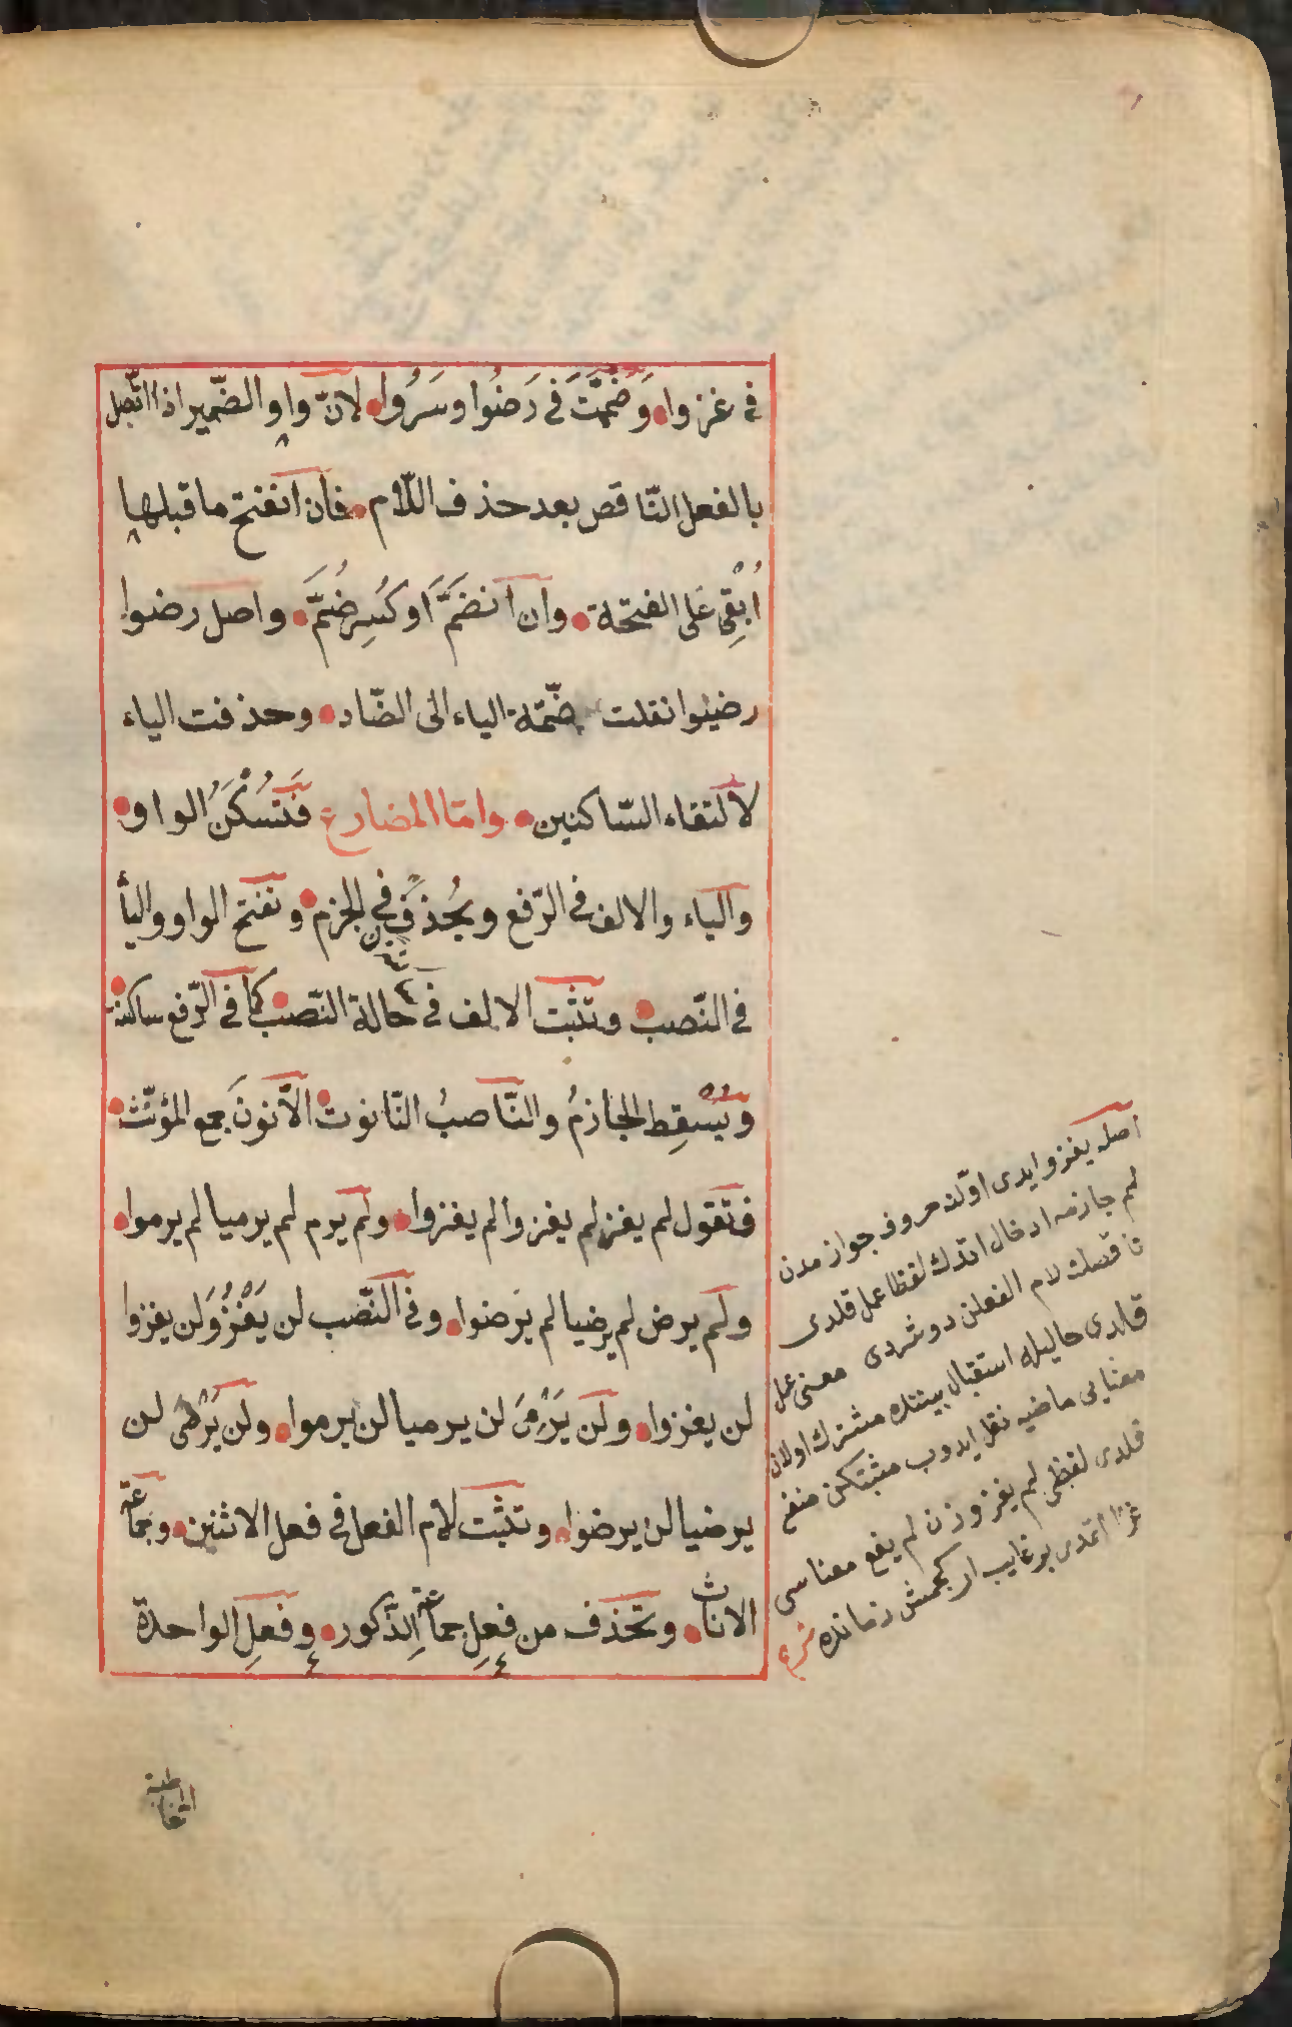 في غزوا وَضُمَّتَ في رَضُوا وسَرُوا لانّ واو الضّمير اذا اتّصل
بالفعل النّاقص بعد حذف اللّام فان انفتح ما قبلها
أُبْقِىَ عَلى الفتحة وان انضَمَّ اَو كُسِرَ ضُمَّ واصل رضوا
رضيوا نقلت ضمّة الياء الى الضّاد وحذفت الياء
لالتقاء السّاكنين وامّا المضارع فَتُسَكَّنُ الواو
والياء والالف في الرّفع ويُحذفن في الجزم وتفتح الواو واليأ
في النّصب وتثبت الالف في حالة النّصب كما في الرّفع ساكنة
ويُسقِط الجازمُ والنّاصبُ النّونات الّا نونَ جمع المؤنّث
فتقول لم يغز لم يغزوا لم يغزوا ولم يرم لم يرميا لم يرموا
ولم يرض لم يرضيا لم يرضوا وفي النّصب لن يَغْزُوَ لن يغزوا
لن يغزوا ولن يَرْمِىَ لن يرميا لن يرموا ولن يَرْضى لن
يرضيا لن يرضوا وتثبت لام الفعل في فعل الاثنين وجماعة
الاناث وتحذف من فعلِ جماعة الذّكور وفعلِ الواحدة
المخاطبة
اصله يغزو ايدى اوّلنه حروف جوازمدن
لم جازمه ادخال اتدك لفظا عمل قلدى
ناقصك لام الفعلن دوشردى معنى عمل
قلدى حاليله استقبال بيننده مشترك اولان
معنايى ماضيه نقل ايدوب مثبتكن منفى
قلدى لفظى لم يغز وزن لم يفع معناسى
غزا اتمدى بر غايب ار كچمش زمانده